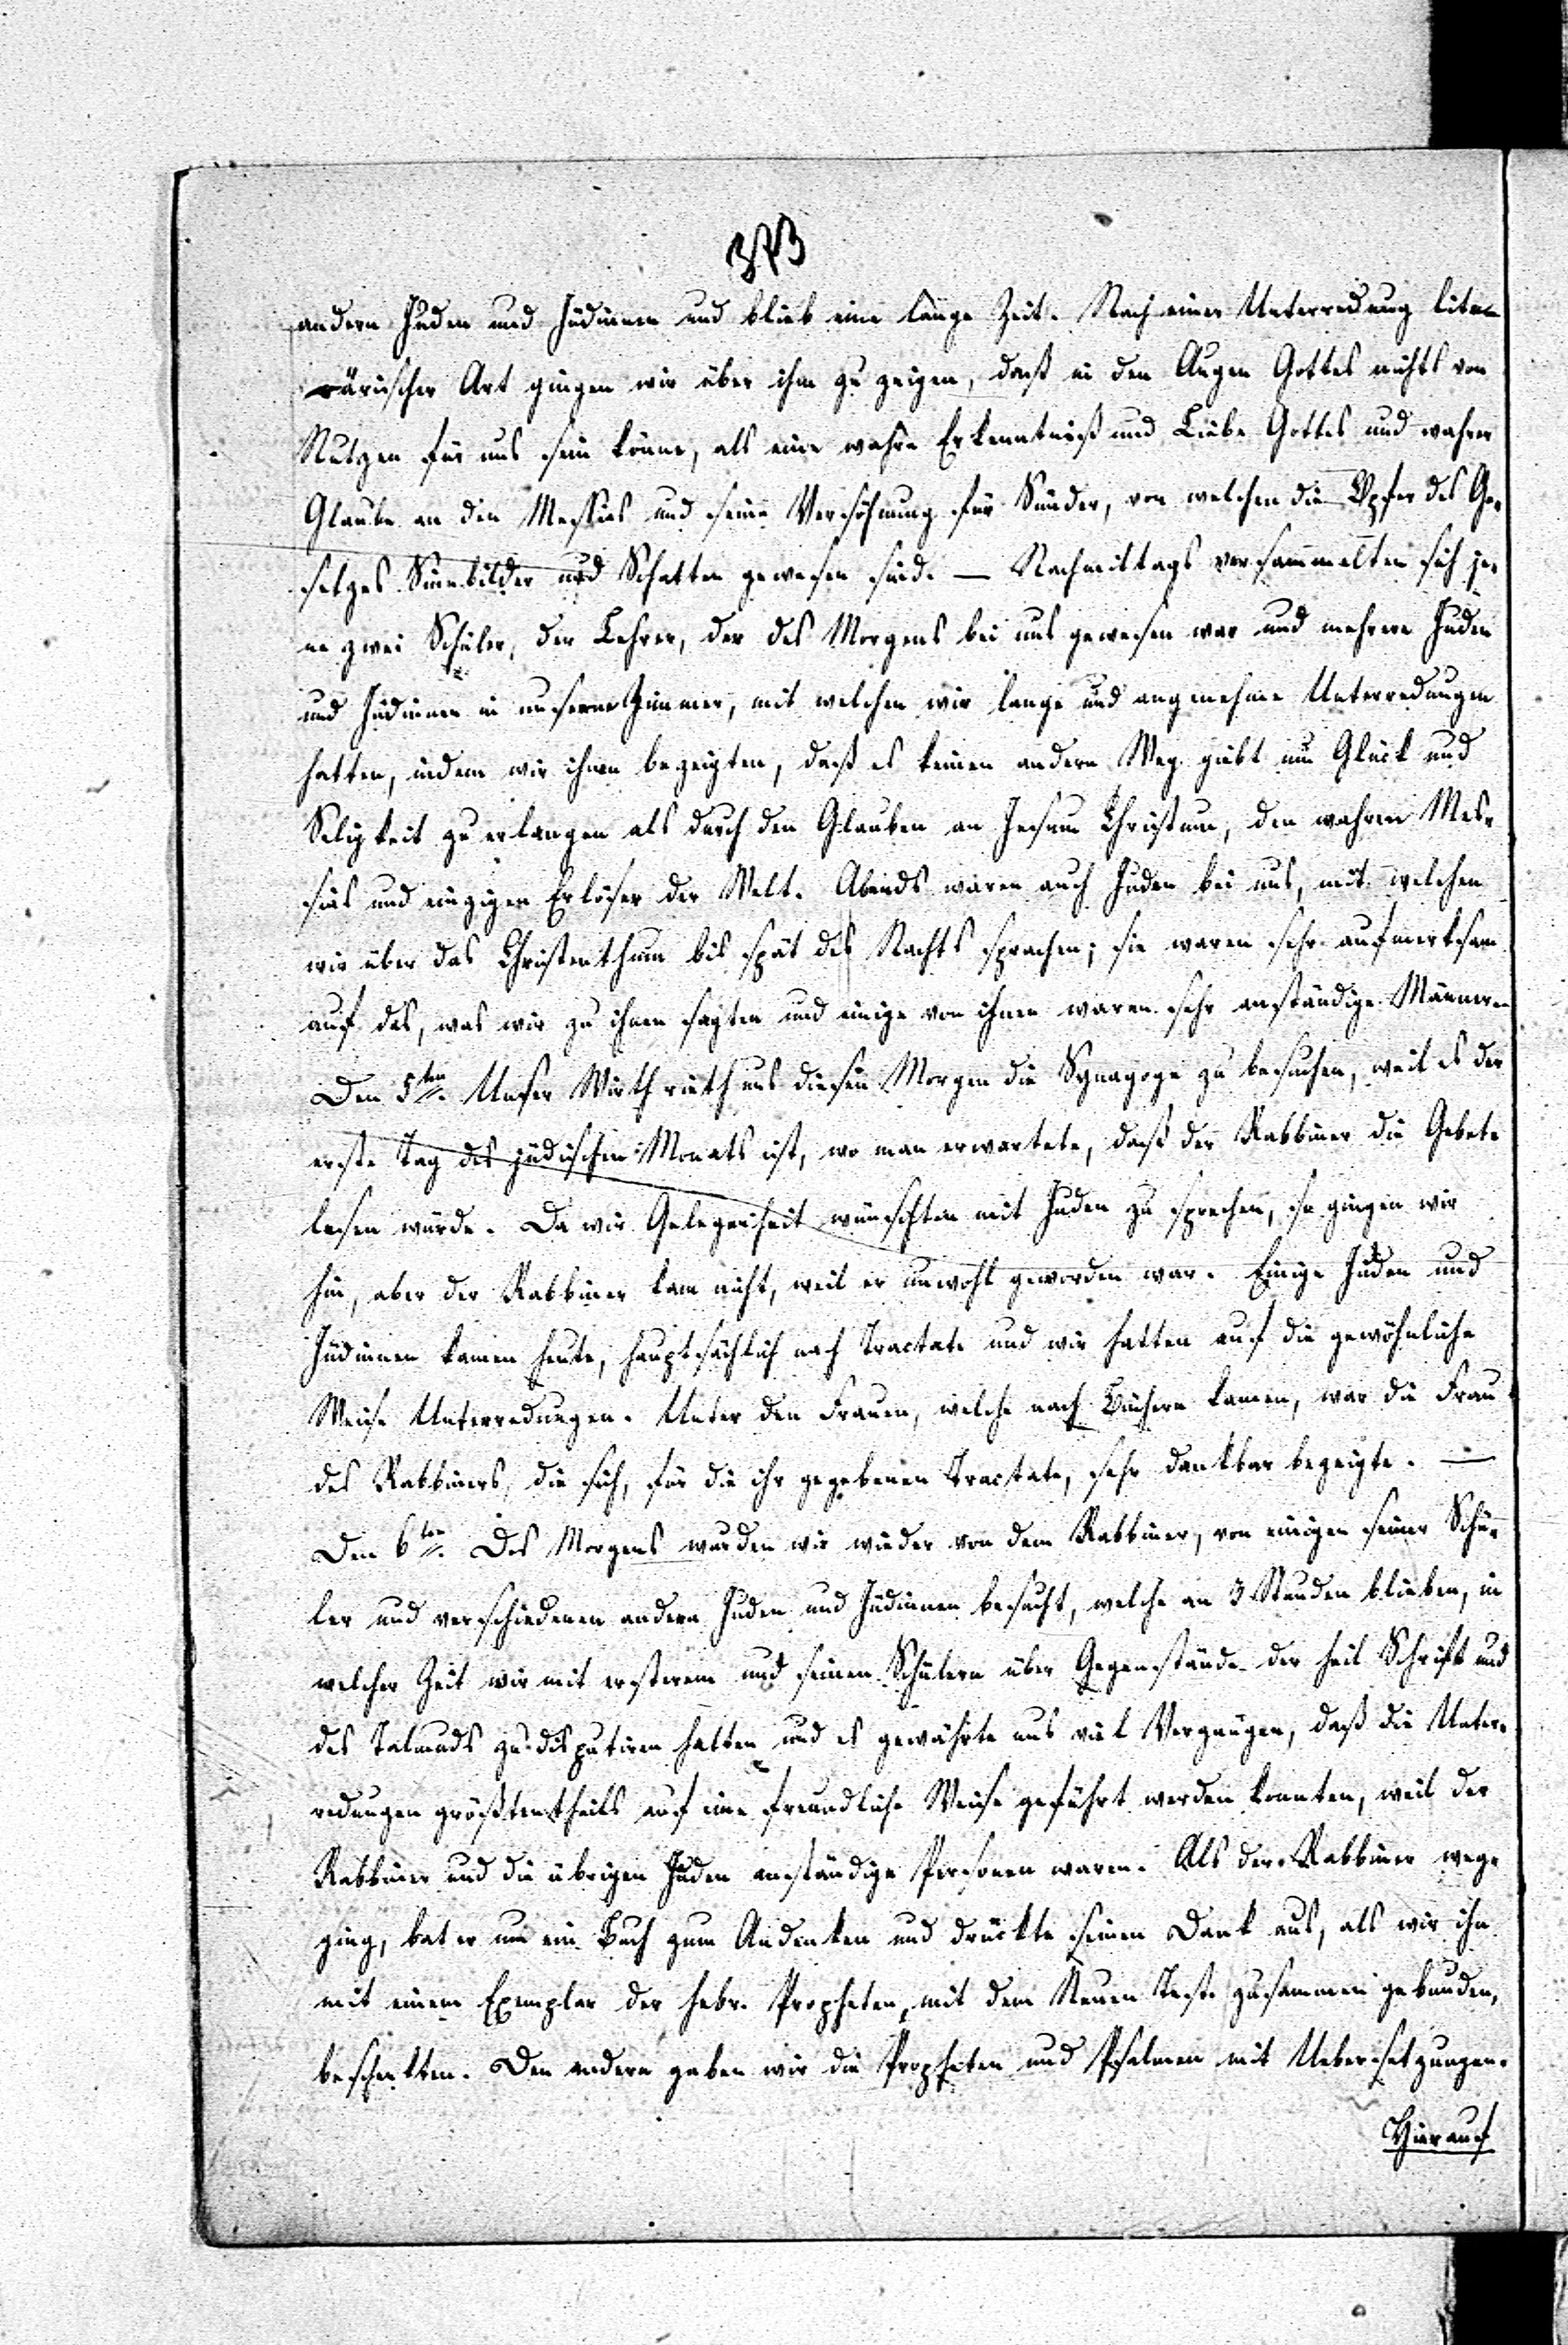 andern Juden und Jüdinnen und blieb eine lange Zeit. Nach einer Unterredung lite-
rärischer Art gingen wir über ihm zu zeigen, daß in den Augen Gottes nichts von
Nutzen für uns sein könne, als eine wahre Erkenntniß und Liebe Gottes und wahrer
Glaube an den Messias und seine Versöhnung für Sünder, von welchen die Opfer des Ge-
setzes Sinnbilder und Schatten gewesen sind. — Nachmittags versammelten sich je-
ne zwei Schüler, der Lehrer, der des Morgens bei uns gewesen war und mehrere Juden
und Jüdinnen in unserm Zimmer, mit welchen wir lange und angenehme Unterredungen
hatten, indem wir ihnen bezeigten, daß es keinen andern Weg giebt um Glück und
Seligkeit zu erlangen als durch den Glauben an Jesum Christum, den wahren Mes-
sias und einzigen Erlöser der Welt. Abends waren auch Juden bei uns, mit welchen
wir über das Christenthum bis spät des Nachts sprachen; sie waren sehr aufmerksam
auf das, was wir zu ihnen sagten und einige von ihnen waren sehr anständige Männer.
Den 5ten. Unser Wirth rieth uns diesen Morgen die Synagoge zu besuchen, weil es der
erste Tag des jüdischen Monats ist, wo man erwartete, daß der Rabbiner die Gebete
lesen würde. Da wir Gelegenheit wünschten mit Juden zu sprechen, so gingen wir
hin, aber der Rabbiner kam nicht, weil er unwohl geworden war. Einige Juden und
Jüdinnen kamen heute, hauptsächlich nach Tractate und wir hatten auf die gewöhnliche
Weise Unterredungen. Unter den Frauen, welche nach Büchern kamen, war die Frau
des Rabbiners, die sich, für die ihr gegebenen Tractate, sehr dankbar bezeigte. —
Den 6ten. Des Morgens wurden wir wieder von dem Rabbiner, von einigen seiner Schü-
ler und verschiedenen andern Juden und Jüdinnen besucht, welche an 3 Stunden blieben, in
welcher Zeit wir mit ersterem und seinen Schülern über Gegenstände der heil Schrift und
des Talmuds zu disputiren hatten und es gewährte uns viel Vergnügen, daß die Unter-
redungen größtentheils auf eine freundliche Weise geführt werden konnten, weil der
Rabbiner und die übrigen Juden anständige Personen waren. Als der Rabbiner weg-
ging, bat er um ein Buch zum Andenken und drückte seinen Dank aus, als wir ihn
mit einem Exemplar der hebr. Propheten, mit dem Neuen Test. zusammen gebunden,
beschenkten. Den andern gaben wir die Propheten und Psalmen mit Uebersetzungen.
Hierauf